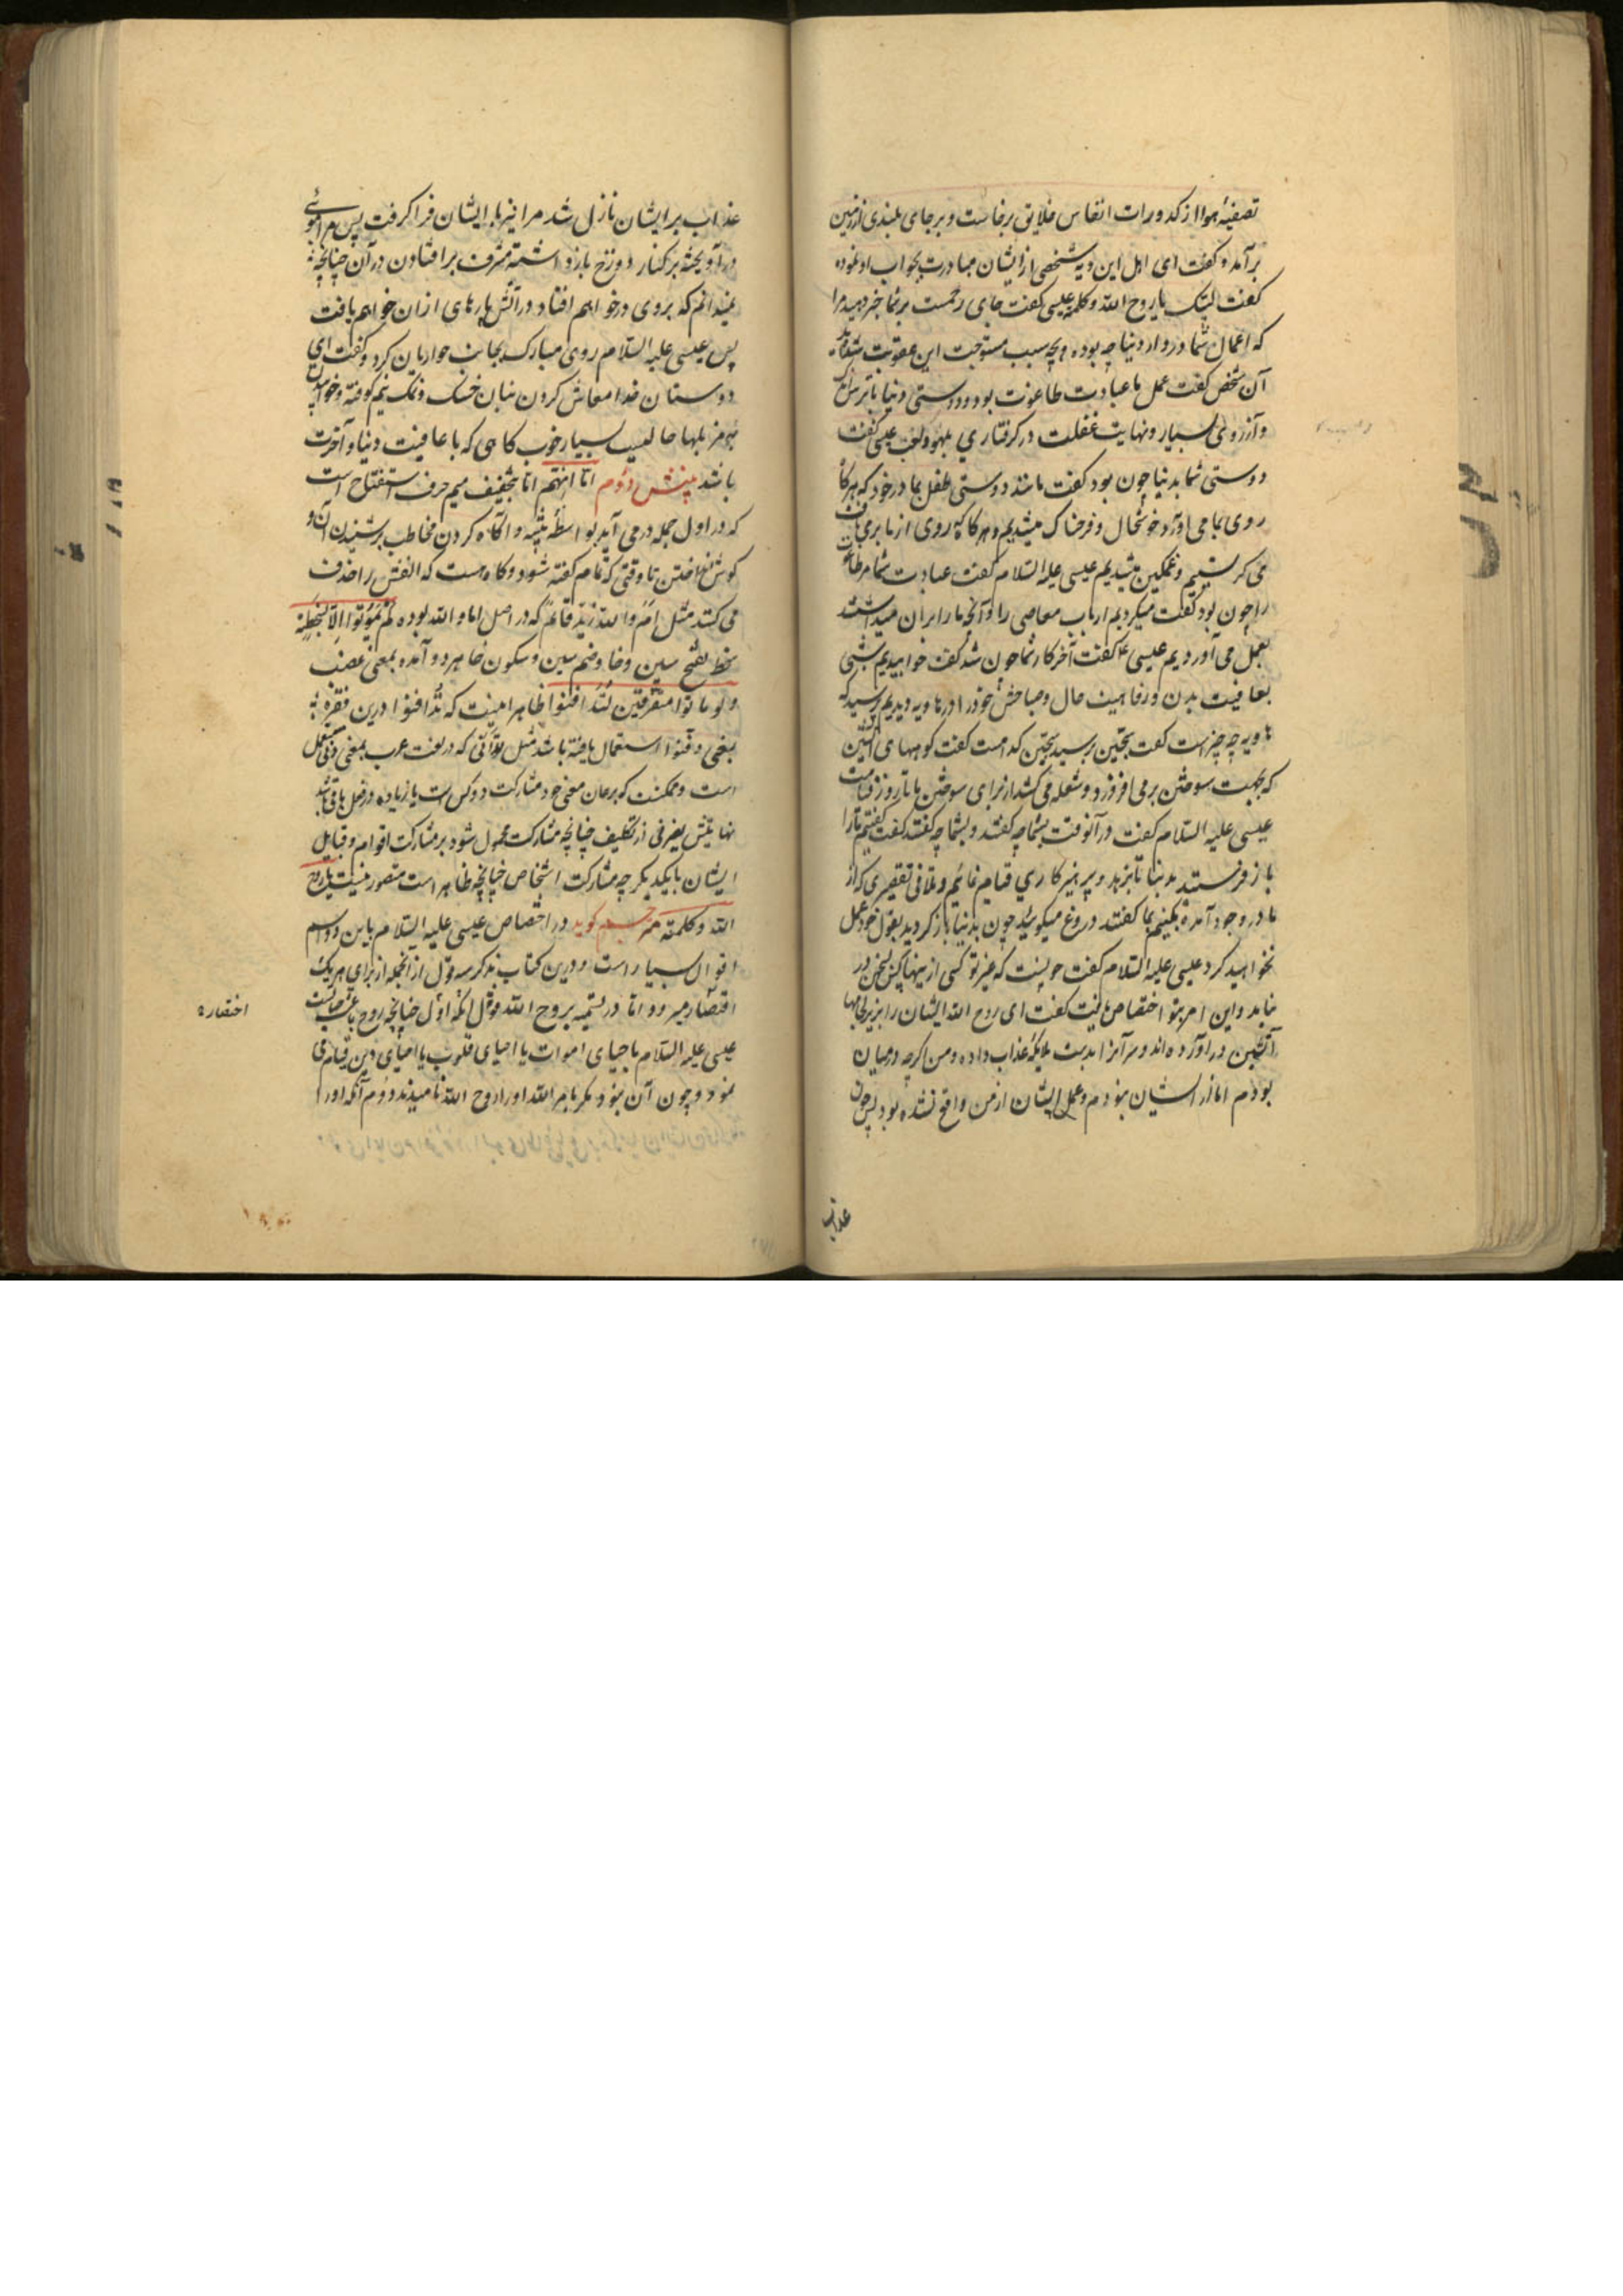 تصفیهٔ هوا از کدورات انفاس خلایق برخاست و بر جای بلندی از زمین
برآمد و گفت ای اهل این دیه شخصی از ایشان مبادرت بجواب او نموده
گفت لبیک یا روح الله و کلمته عیسی گفت جای رحمست بر شما خبر دهید مرا
که اعمال شما در دار دنیا چه بوده و بچه سبب مستوجب این عقوبت شده‌اید
آن شخص گفت عمل ما عبادت طاغوت بود و دوستی دنیا با ترس اندک
و آرزوی بسیار و نهایت غفلت در گرفتاری بلهو و لعب عیسی گفت
دوستی شما بدنیا چون بود گفت مانند دوستی طفل بمادر خود که هرگاه
روی بما می آورد خوشحال و فرحناک میشدیم و هرگاه که روی از ما بر می تافت
می گریستیم و غمگین میشدیم عیسی علیه السلام گفت عبادت شما مر طاغوت
را چون بود گفت میکردیم ارباب معاصی را و آنچه ما را بر آن میداشتند
بعمل می آوردیم عیسی ع گفت آخر کار شما چون شد گفت خوابیدیم شبی
بعافیت بدن و رفاهیت حال و صباحش خود را در هاویه دیدیم پرسید که
هاویه چه چیز است گفت سجین پرسید سجین کدامست گفت کوههای آتشین
که بجهت سوختن بر می افروزد و شعله می کشد از برای سوختن ما تا روز قیامت
عیسی علیه السلام گفت در آنوقت بشما چه گفتند و بشما چه گفتند گفت گفتیم ما را
باز فرستید بدنیا تا بزهد و پرهیزکاری قیام نمائیم و تلافی تقصیری که از
ما در وجود آمده بکنیم بما گفتند دروغ میگوئید چون بدنیا بازگردید بقول خود عمل
نخواهید کرد عیسی علیه السلام گفت چونست که غیر تو کسی از اینها با من سخن در
نیامد و این امر بتو اختصاص یافت گفت ای روح الله ایشان را بزیر لجامها
آتشین در آورده اند و سر آنرا بدست ملایکه عذاب داده و من اگرچه در میان
بودم اما از ایشان نبودم و عمل ایشان از من واقع نشده بود پس چون
عذاب
عذاب بر ایشان نازل شد مرا نیز با ایشان فرا گرفت پس مرا بموئی
در آویخته بر کنار دوزخ باز داشته مشرف بر افتادن در آن چنانچه
نمیدانم که بروی در خواهم افتاد در آتش یا رهای از آن خواهم یافت
پس عیسی علیه السلام روی مبارک بجانب حواریان کرد و گفت ای
دوستان خدا معاش کردن بنان خشک و نمک نیم کوفته و خوابیدن
بر مزبلها حالیست بسیار خوب کاهی که با عافیت دنیا و آخرت
باشد بینش دوم اما انهم اما بتخفیف میم حرف استفتاح است
که در اول جمله در می آید بواسطه تنبیه و آگاه کردن مخاطب بر شنیدن آن و
گوش انداختن تا وقتی که تمام گفته شود و گاه هست که الفش را حذف
می کنند مثل ام والله زید قائم که در اصل اما والله بوده لم یموتوا الا بسخطة
سخط بفتح سین و خا و ضم سین و سکون خا هر دو آمده بمعنی غضب
و لو ماتوا متفرقین لتدافنوا ظاهرا مینست که تدافنوا درین فقره
بمعنی دفنوا استعمال یافته باشد مثل توانی که در لغت عرب بمعنی ونی مستعمل
است و ممکنست که بر همان معنی خود مشارکت دو کس است یا زیاده در فعل باقی باشد
نهایتش بصرفی از تکلیف چنانچه مشارکت محمول شود بر مشارکت اقوام و قبایل
ایشان با یکدیگر چه مشارکت اشخاص چنانچه ظاهر است متصور نیست یا روح
الله و کلمته مترجم گوید در اختصاص عیسی علیه السلام باین دو اسم
اقوال بسیار است و درین کتاب بذکر سه قول از آنجمله از برای هر یک
اقتصار میرود اما در تسمیه بروح الله قول اول آنکه چنانچه روح باعث حیاتست
عیسی علیه السلام باحیای اموات یا احیای قلوب یا احیای دین قیام می
نمود و چون آن نبود مگر بامر الله او را روح الله نامیدند دوم آنکه او را
اختصاره